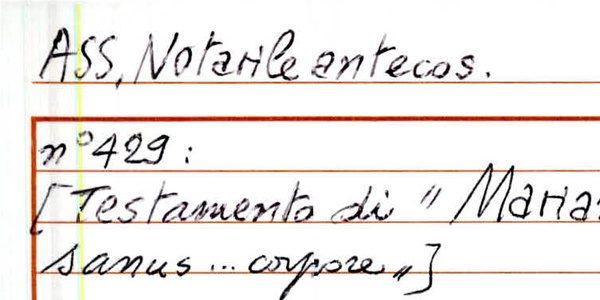 ASS, Notarile antecos.
n° 429:
[Testamento di " Maria
sanus... corpore "]